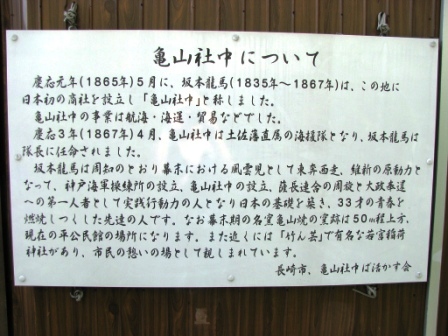 亀山社中について
慶応元年(1865年)5月に、坂本龍馬(1835年～1867年)は、この地に
日本初の商社を設立し「亀山社中」と称しました。
亀山社中の事業は航海・海運・貿易などでした。
慶応3年(1867年)4月、亀山社中は土佐藩直属の海援隊となり、坂本龍馬は
隊長に任命されました。
坂本龍馬は周知のとおり幕末における風雲児として東奔西走、維新の原動力と
なって、神戸海軍操練所の設立、亀山社中の設立、薩長連合の周旋と大政奉還
への第一人者として実践行動力の人となり日本の基礎を築き、33才の青春を
燃焼しつくした先達の人です。なお幕末期の名窯亀山焼の窯跡は50m程上方、
現在の平公民館の場所になります。また近くには「竹ん芸」で有名な若宮稲荷
神社があり、市民の憩いの場として親しまれています。
長崎市、亀山社中ば活かす会